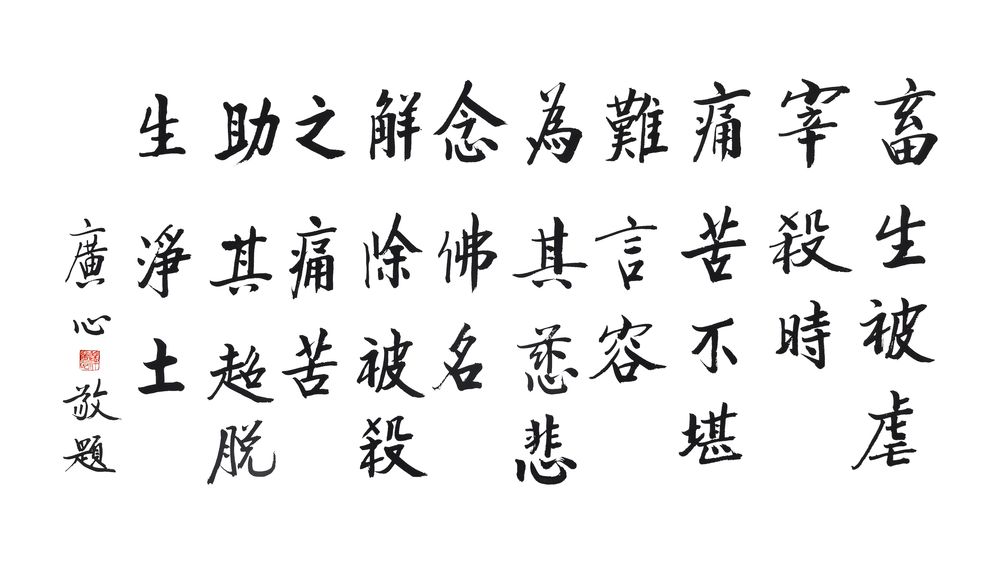 畜生被虐
宰殺時
痛苦不堪
難言容
為其慈悲
念佛名
解除被殺
之痛苦
助其超脱
生淨土
廣心敬題